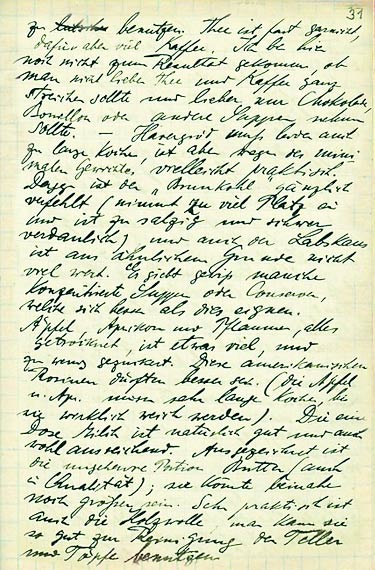 31
zu benutzen. Thee ist fast garnicht,
dafür aber viel Kaffee. Ich bin hier
noch nicht zum Resultat gekommen, ob
man nicht lieber Thee und Kaffee ganz
streichen sollte und lieber nur Chokolade,
Bouillon oder andere Suppen nehmen
sollte. — Hafergrütz muss leider auch
zu lange kochen, ist aber wegen des mini
malen Gewichtes vielleicht praktisch.
Dagg. ist der „Braunkohl" gänzlich
verfehlt (nimmt zu viel Platz ein
und ist zu salzig und schwer
verdaulich) und auch der Labskaus
ist aus ähnlichem Grunde nicht
viel wert. Es giebt gewiss manche
konzentriert Suppen oder Conserven,
welche sich besser als dies eignen.
Äpfel, Aprikosen und Pflaumen, alles
getrocknet, ist etwas viel, und
zu wenig gezuckert. Diese amerikanischen
Rosinen dürften besser sein. (die Äpfel
u. Apr. müssen sehr lange kochen, bis
sie wirklich weich werden). Die eine
Dose Milch ist natürlich gut und auch
wohl ausreichend. Ausgezeichnet ist
die ungeheure Portion Butter (auch
in Qualität); sie könnte beinahe
noch größer sein. Sehr praktisch ist
auch die Holzwolle, man kann sie
so gut zur Reinigung der Teller
und Töpfe benutzen